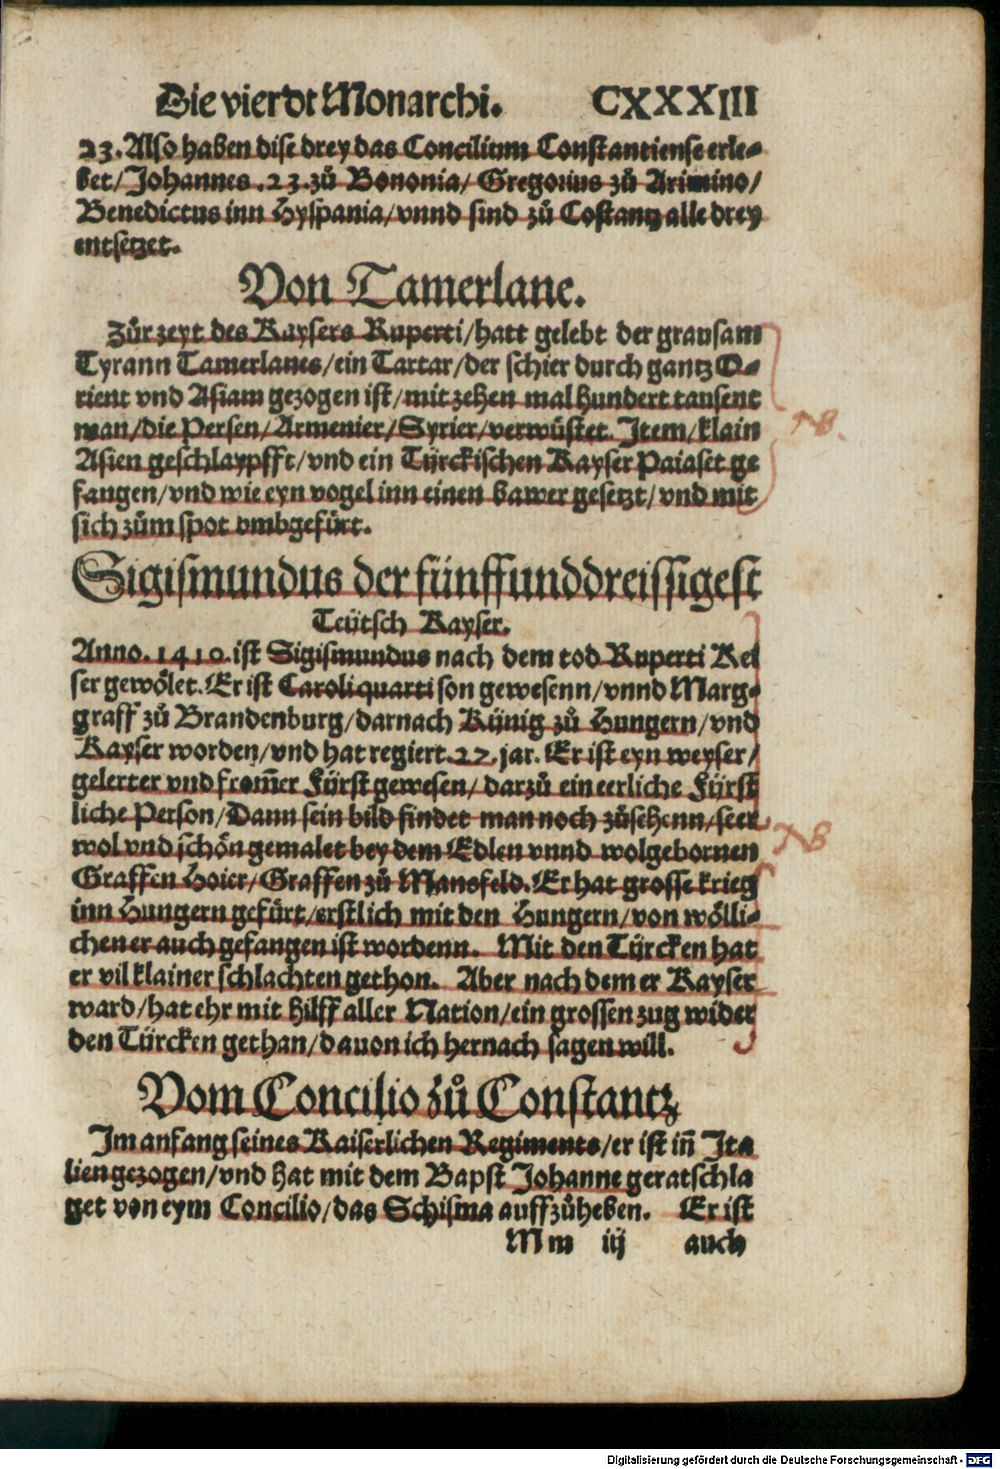 Die vierdt Monarchi. CXXXIII
23. Also haben dise drey das Concilium Constantiense erle-
bet/Johannes .23. zů Bononia/ Gregorius zů Arimino/
Benedictus inn Hyspania/vnnd sind zů Costantz alle drey
entsetzet.
Von Tamerlane.
Zůr zeyt des Kaysers Ruperti/hatt gelebt der grausam
Tyrann Tamerlanes/ein Tartar/der schier durch gantz O-
rient vnd Asiam gezogen ist/mit zehen mal hundert tausent
man/die Persen/Armenier/Syrier/verwüstet. Item/klain
Asien geschlaypfft/vnd ein Türckischen Kayser Paiaset ge
fangen/vnd wie eyn vogel inn einen bawer gesetzt/vnd mit
sich zům spot vmbgefürt.
NB.
Sigismundus der fünffunddreissigest
Teütsch Kayser.
Anno. 1410. ist Sigismundus nach dem tod Ruperti Kei
ser gewölet. Er ist Caroli quarti son gewesenn/vnnd Marg-
graff zů Brandenburg/darnach Künig zů Hungern/vnd
Kayser worden/vnd hat regiert .27. jar. Er ist eyn weyser/
gelerter vnd from̃er Fürst gewesen/ darzů ein eerliche Fürst
liche Person/Dann sein bild findet man noch zůsehenn/seer
wol vnd schön gemalet bey dem Edlen vnnd wolgebornen
Graffen Hoier/Graffen zů Mansfeld. Er hat grosse krieg
inn Hungern gefürt/erstlich mit den Hungern/von wölli-
chen er auch gefangen ist wordenn. Mit den Türcken hat
er vil klainer schlachten gethon. Aber nach dem er Kayser
ward/hat ehr mit hilff aller Nation/ein grossen zug wider
den Türcken gethan/dauon ich hernach sagen will.
NB
Vom Concilio zů Constantz
Im anfang seines Kaiserlichen Regiments/er ist in̄ Ita
lien gezogen/vnd hat mit dem Bapst Johanne geratschla
get von eym Concilio/das Schisma auffzůheben. Er ist
Mm iij auch
Digitalisierung gefördert durch die Deutsche Forschungsgemeinschaft - DFG